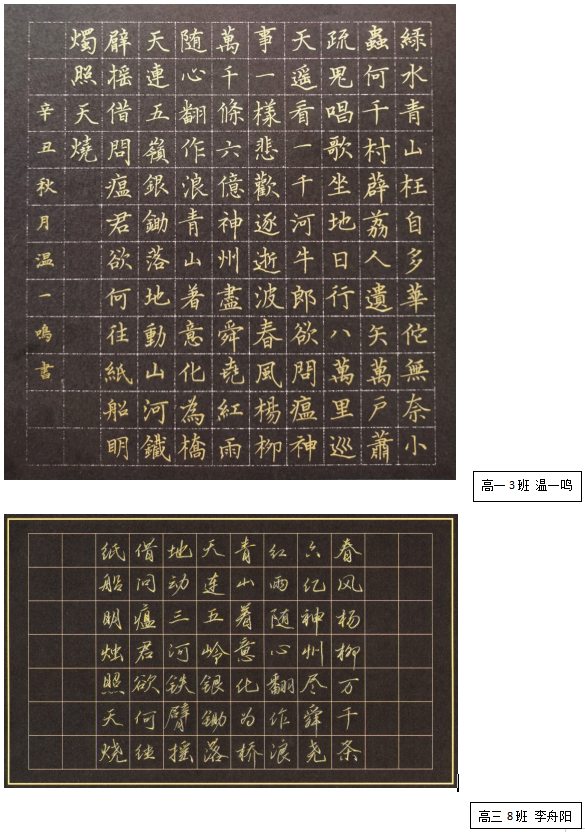 綠水青山枉自多華佗無奈小
蟲何千村薜荔人遺矢萬戶蕭
疏鬼唱歌坐地日行八萬里巡
天遥看一千河牛郎欲問瘟神
事一樣悲歡逐逝波春風楊柳
萬千條六億神州盡舜堯紅雨
随心翻作浪青山着意化為橋
天連五嶺銀鋤落地動山河鐵
臂摇借問瘟君欲何往紙船明
燭照天燒
辛丑秋月温一鳴書
高一 3班 温一鸣
春风杨柳万千条
六亿神州尽舜尧
红雨随心翻作浪
青山着意化为桥
天连五岭银锄落
地动三河铁臂摇
借问瘟君欲何往
纸船明烛照天烧
高三 8班 李舟阳